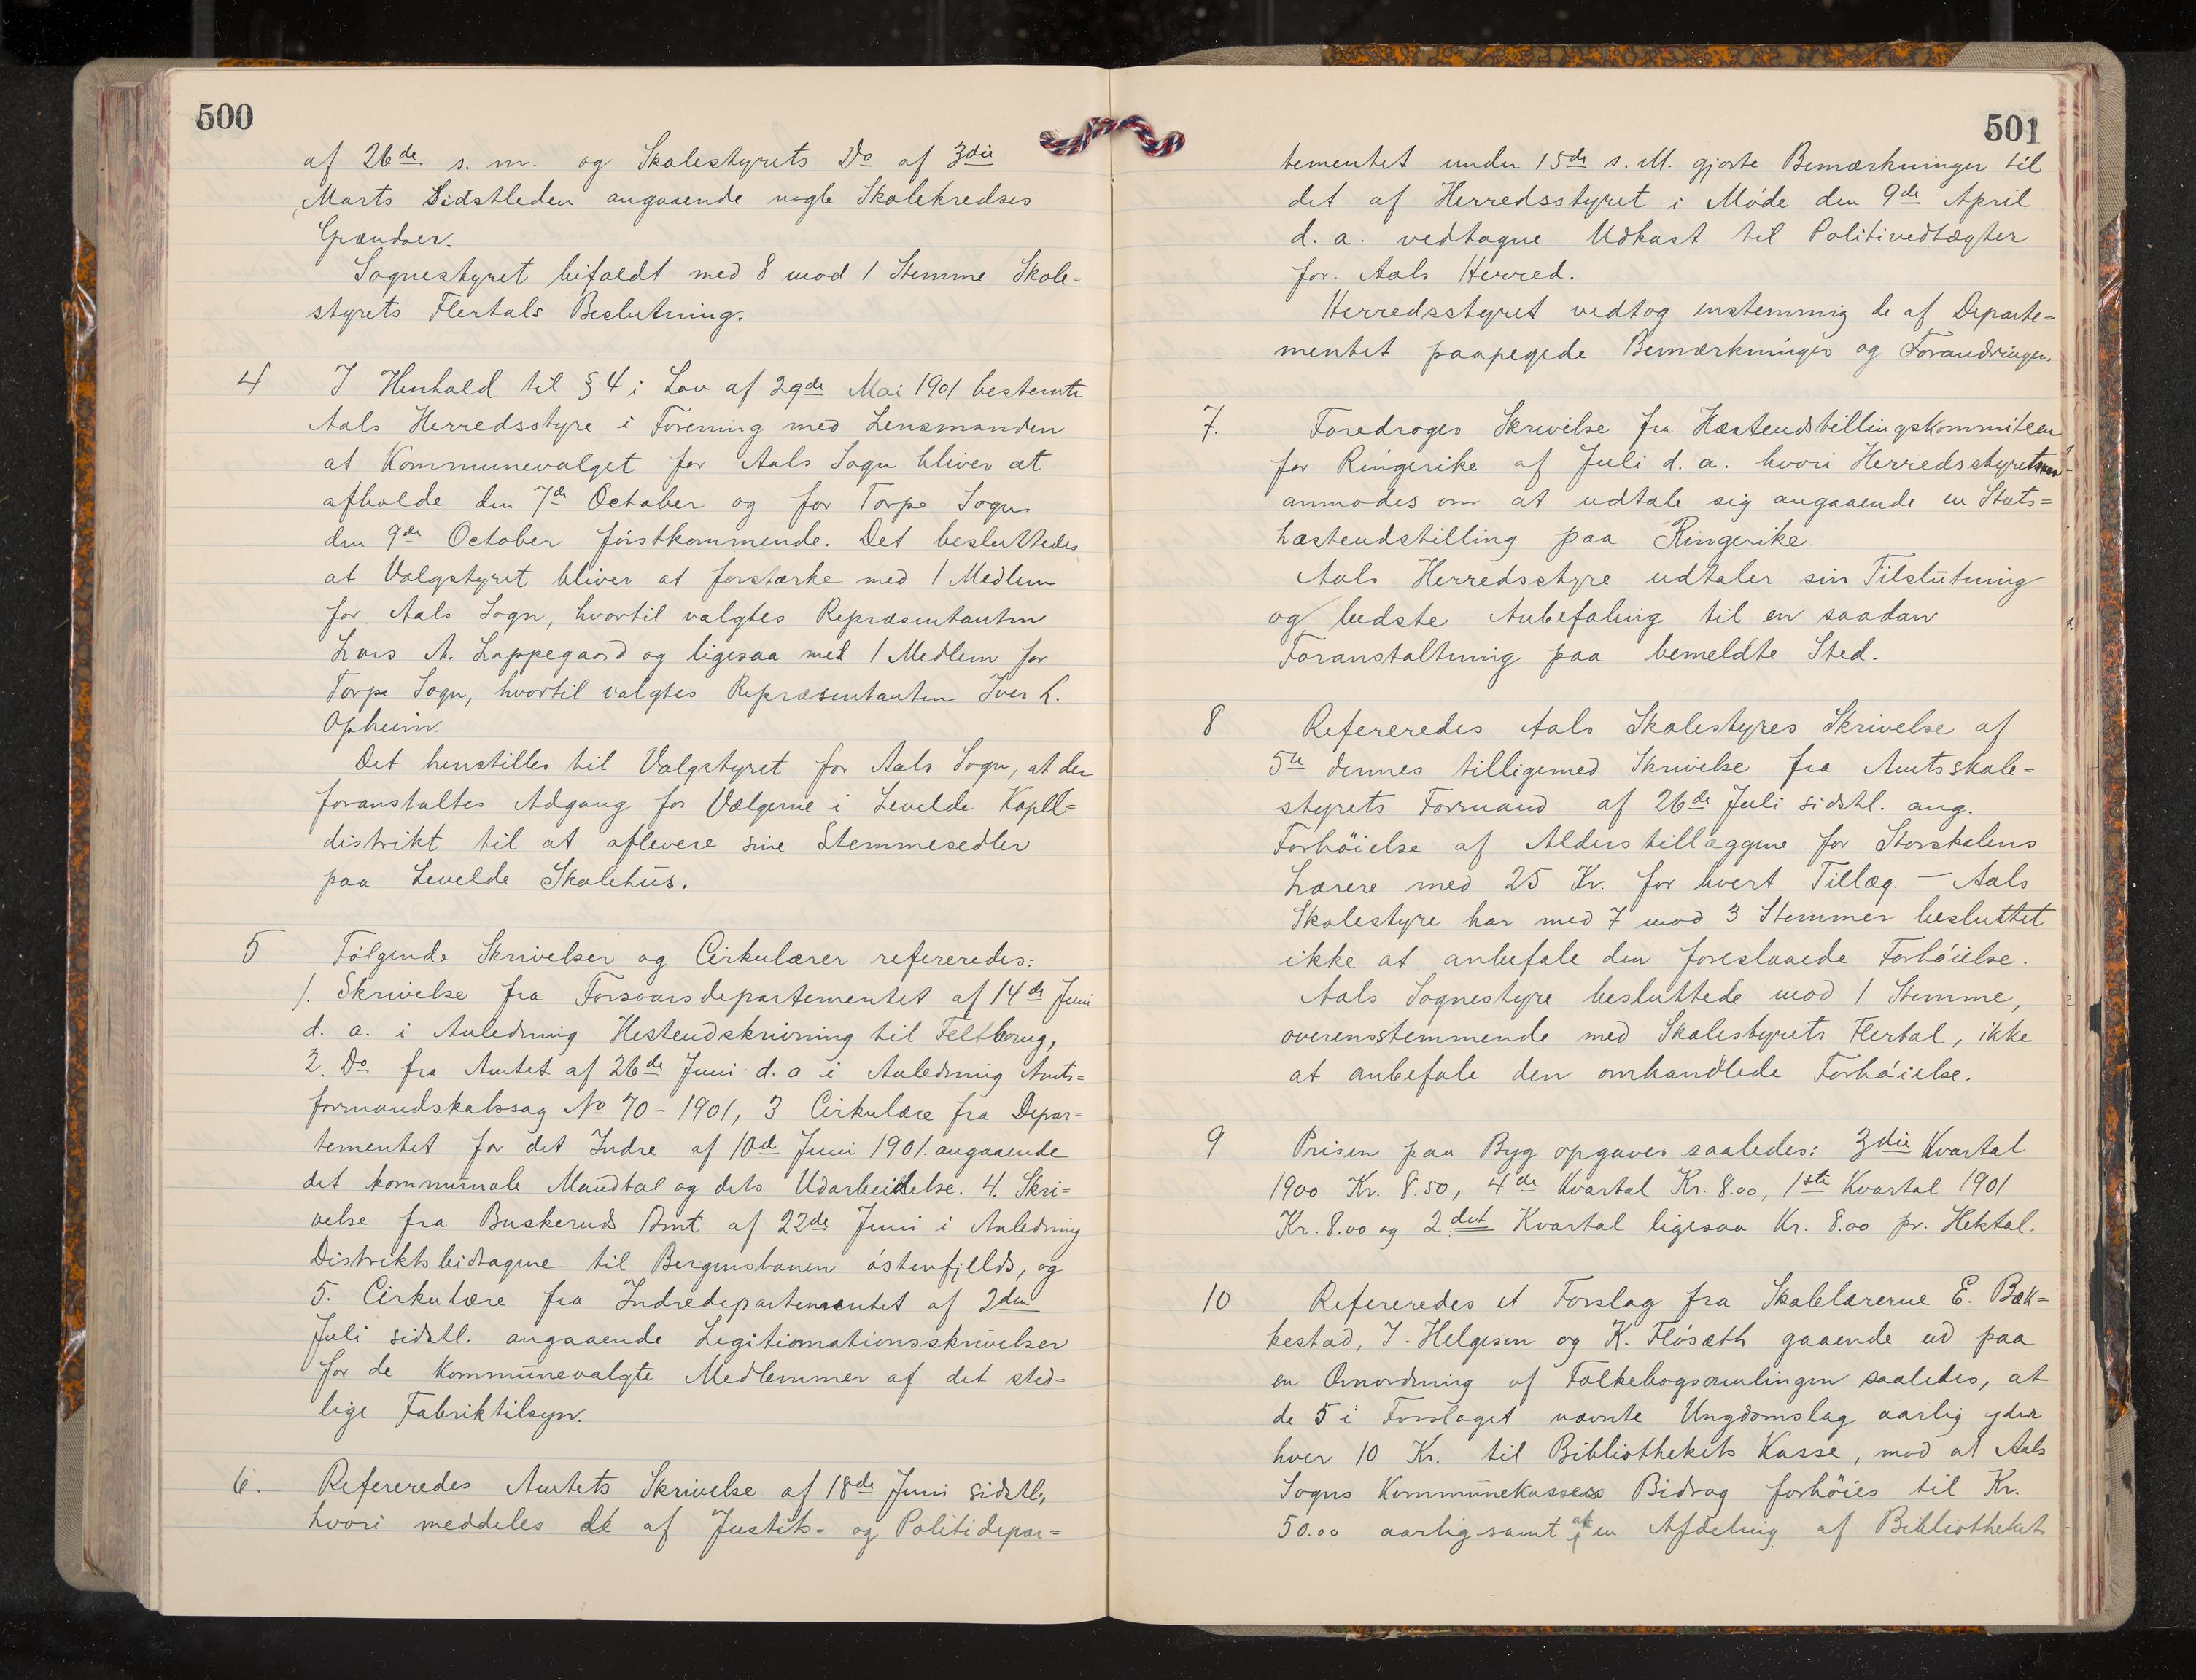 500
af 26de s. m. og Skolestyrets Do af 3die
Marts Sidstleden angaaende nogle Skolekredses
Grændser.
Sognestyret bifaldt med 8 mod 1 Stemme Skole=
styrets Flertals Beslutning.
4 I Henhold til § 4 i Lov af 29de Mai 1901 bestemte
Aals Herredsstyre i Forening med Lensmanden
at Kommunevalget for Aals Sogn bliver at
afholde den 7de October og for Torpe Sogn
den 9de October førstkommende. Det besluttedes
at Valgstyret bliver at forstærke med 1 Medlem
for Aals Sogn, hvortil valgtes Repræsentanten
Lars A. Lappegaard og ligesaa med 1 Medlem for
Torpe Sogn, hvortil valgtes Repræsentanten Iver L.
Opheim.
Det henstilles til Valgstyret for Aals Sogn, at der
foranstaltes Adgang for Vælgerne i Levelde Kapll=
distrikt til at aflevere sine Stemmesedler
paa Levelde Skolehus.
5 Følgende Skrivelser og Cirkulærer refereredes:
1. Skrivelse fra Forsvarsdepartementet af 14de Juni
d. a. i Anledning Hesteudskrivning til Feltbrug,
2. Do fra Amtet af 26de Juni d. a i Anledning Amts=
formandskabssag No 70 - 1901, 3 Cirkulære fra Depar=
tementet for det Indre af 10de Juni 1901. angaaende
det kommunale Mandtal og dets Udarbeidelse. 4. Skri=
velse fra Buskeruds Amt af 22de Juni i Anledning
Distriktsbidragene til Bergensbanen østenfjelds, og
5. Cirkulære fra Indredepartementet af 2den
Juli sidstl. angaaende Legitimationsskrivelser
for de kommunevalgte Medlemmer af det sted=
lige Fabriktilsyn.
6. Refereredes Amtets Skrivelse af 18de Juni sidstl.,
hvori meddeles de af Justits- og Politidepar=
501
tementet under 15de s. M. gjorte Bemærkninger til
det af Herredsstyret i Møde den 9de April
d. a. vedtagne Udkast til Politivedtægter
for Aals Herred.
Herredsstyret vedtog enstemmig de af Departe=
mentet paapegede Bemærkninger og Forandringer.
7. Foredroges Skrivelse fra Hæsteudstillingskommiteen
for Ringerike af Juli d. a. hvori Herredsstyret
anmodes om at udtale sig angaaende en Stats=
hæsteudstilling paa Ringerike.
Aals Herredsstyre udtaler sin Tilslutning
og bedste Anbefaling til en saadan
Foranstaltning paa bemeldte Sted.
8 Refereredes Aals Skolestyres Skrivelse af
5te dennes tilligemed Skrivelse fra Amtsskole=
styrets Formand af 26de Juli sidstl. ang.
Forhöielse af Alderstillæggene for Storskolens
Lærere med 25 Kr. for hvert Tillæg. — Aals
Skolestyre har med 7 mod 3 Stemmer besluttet
ikke at anbefale den foreslaaede Forhøielse.
Aals Sognestyre besluttede mod 1 Stemme,
overensstemmende med Skolestyrets Flertal, ikke
at anbefale den omhandlede Forhøielse.
9 Prisen paa Byg opgaves saaledes: 3die Kvartal
1900 Kr. 8.50, 4de Kvartal Kr. 8.00, 1ste Kvartal 1901
Kr. 8.00 og 2det Kvartal ligesaa Kr. 8.00 pr. Hektol.
10 Refereredes et Forslag fra Skolelærerne E. Bæk=
kestad, I. Helgesen og K. Fløsæth gaaende ud paa
en Omordning af Folkebogsamlingen saaledes, at
de 5 i Forslaget nævnte Ungdomslag aarlig yder
hver 10 Kr. til Bibliothekets Kasse, mod at Aals
Sogns Kommunekasses Bidrag forhöies til Kr.
50.00 aarlig samt at en Afdeling af Bibliotheket